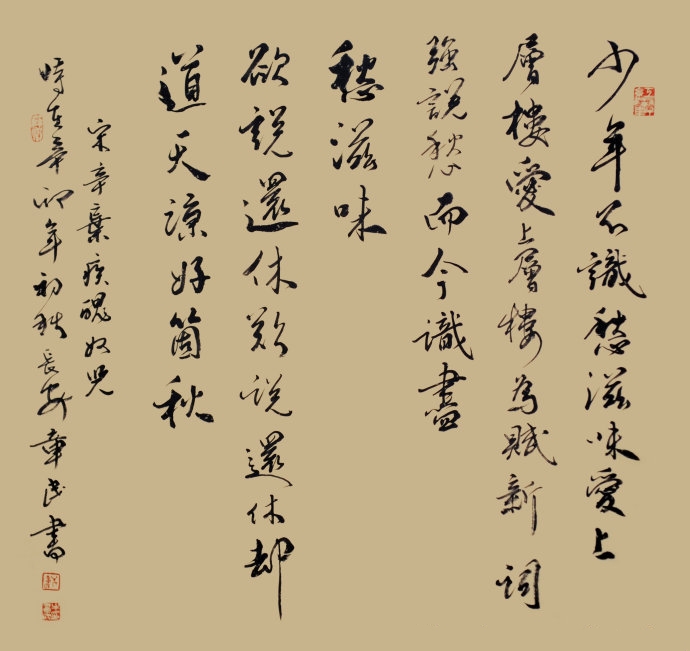 少年不識愁滋味愛上
層樓愛上層樓為賦新詞
強說愁而今識盡
愁滋味
欲說還休欲說還休却
道天涼好箇秋
宋辛棄疾醜奴兒
時在辛卯年初秋長安民書